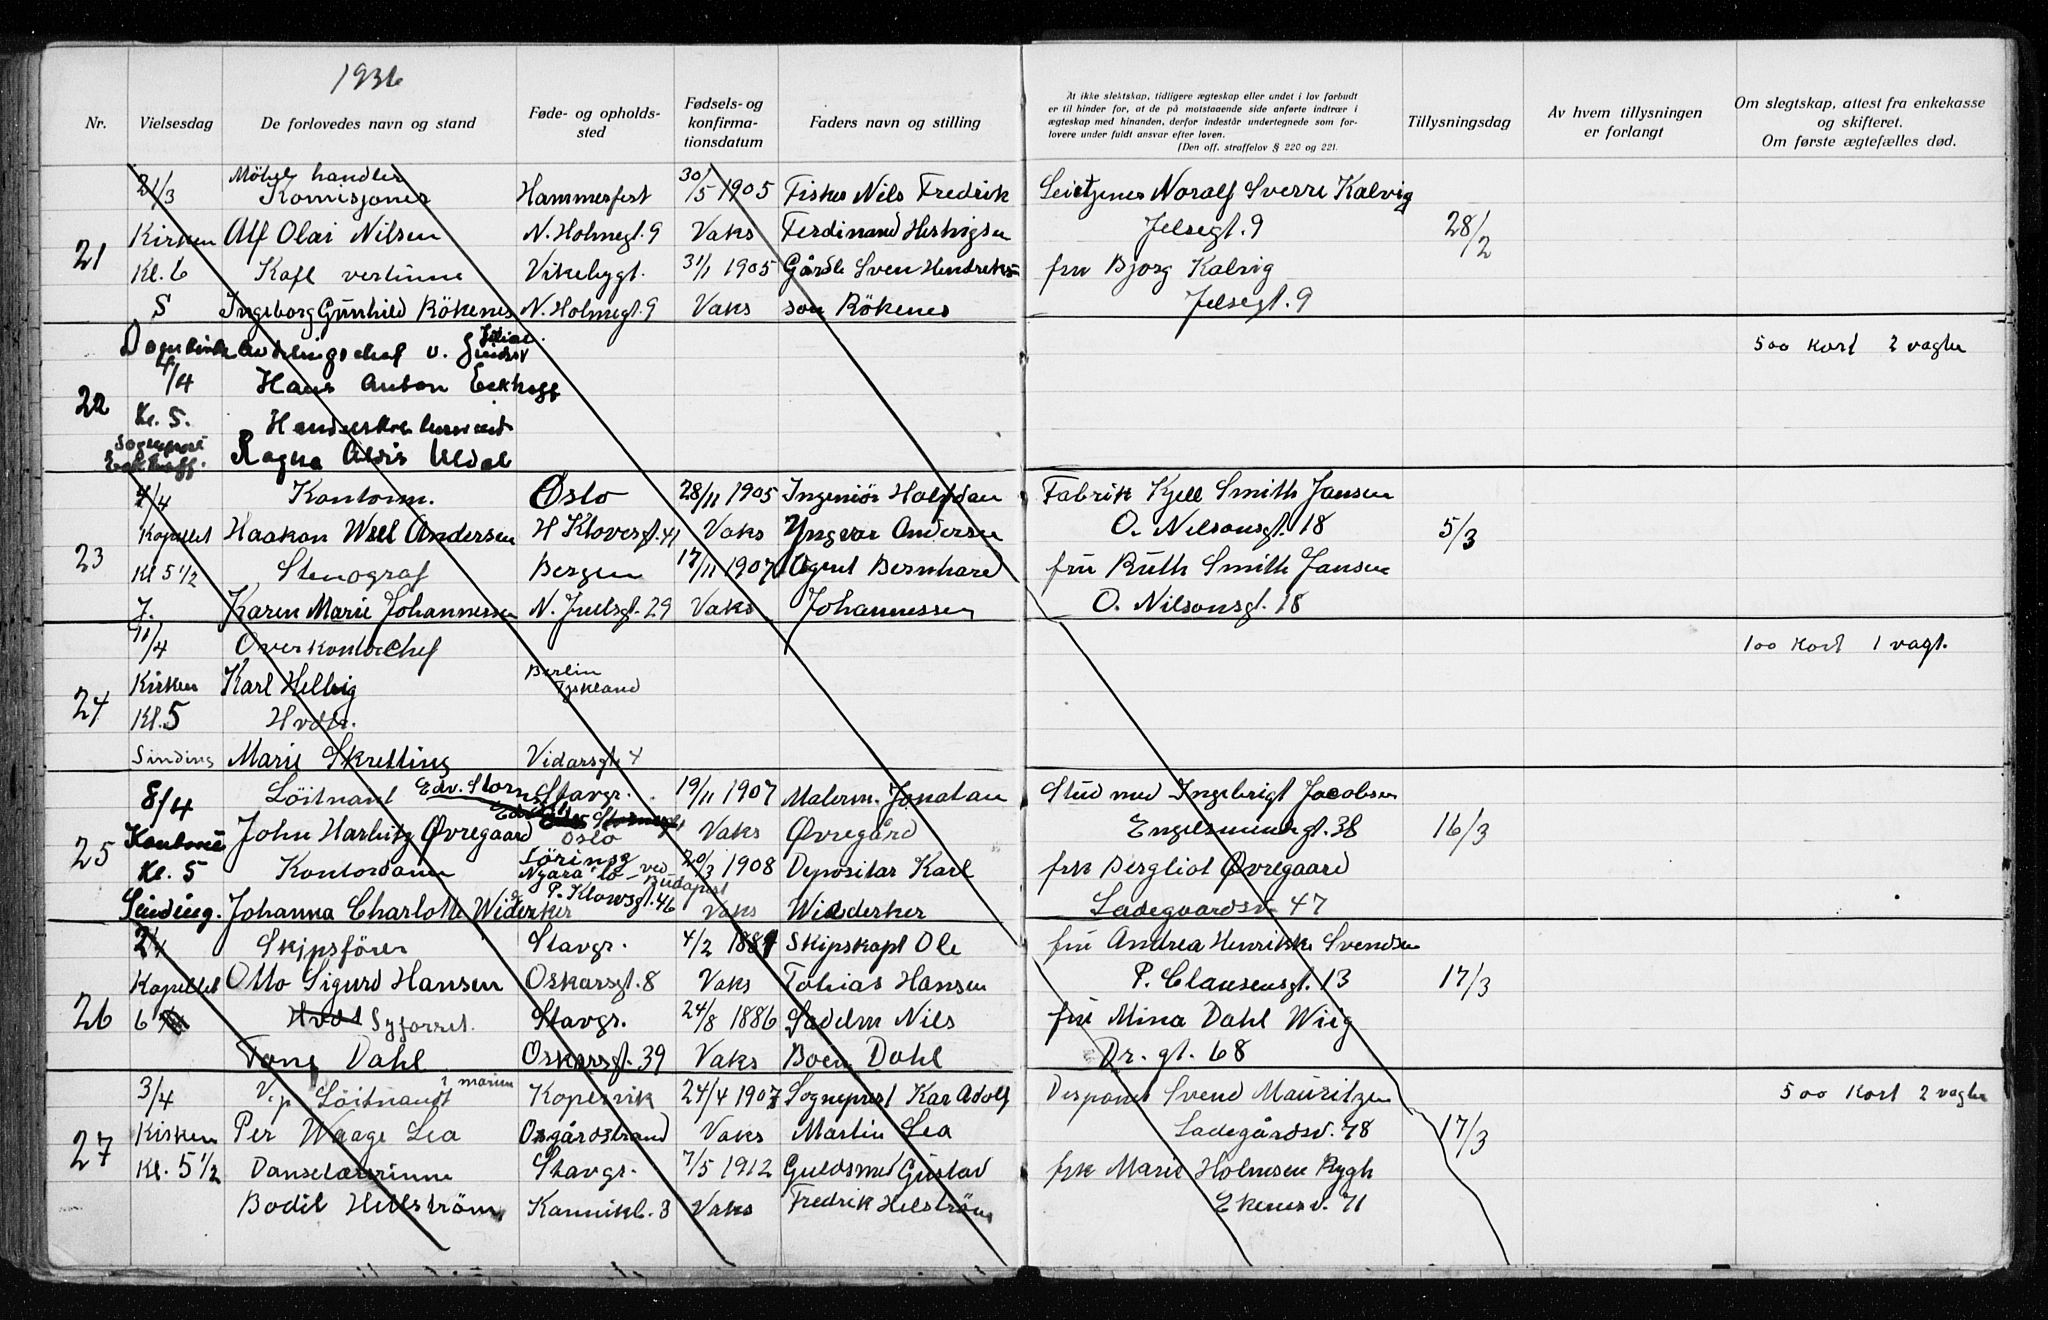 1936
Nr. Vielsesdag De forlovedes navn og stand Føde- og opholds-sted Fødsels- og konfirma-tionsdatum Faders navn og stilling
At ikke slektskap, tidligere ægteskap eller undet i lov forbudt
er til hinder for, at de på motstaaende side anførte indtrær i
ægteskap med hinanden, derfor indestår undertegnede som for-
lovere under fuldt ansvar efter loven.
(Den off. straffelov § 220 og 221.
Tillysningsdag Av hvem tillysningen er forlangt
Om slegtskap, attest fra enkekasse
og skifteret.
Om første ægtefælles død.
Möbelhandler
21/3 Komisjonær Hammerfest 30/5 1905 Fisker Nils Fredrik Noralf Sverre Kalvig
21 Kirken Alf Olai Nilsen N. Holmegt. 9 Vaks Ferdinand Jelsegt. 9 28/2
Kl. 6 Kafévertinne Vikebygt. 31/1 1905 Gårdb Sven Hendrik- fru Bjorg Kalvig
S Ingeborg Gunhild Rökenes N. Holmegt. 9 Vaks son Rökenes Jelsegt. 9
Domkirk Avdelingschef v. 500 kort 2 vagter
22 4/4 Hans Anton Eckhoff
Kl. 5.
Sogneprest
Eckhoff. Ragna Aldis Uldal
4/4 Kontorm. Oslo 28/11 1905 Ingeniør Halfdan Fabrik Kjell Smith Jansen
23 Kapellet Haakon Will Andersen H Klovesgt. 41 Vaks Yngvar Andersen O. Nilsonsgt. 18 5/3
Kl 5 1/2 Stenograf Bergen 17/11 1907 Agent Bernhard fru Ruth Smith Jansen
J. Karen Marie Johannessen N. Juelsgt. 29 Vaks Johannessen O. Nilsonsgt. 18
11/4 Overkontorchef 100 kort 1 vagt.
24 Kirken Karl Helbig Berlin Tyskland
Kl. 5 Hvdtr.
Sinding Marie Skretting Vidarsgt 4
8/4 Löitnant Edv. Storms Stavgr. 19/11 1907 Malerm. Jonatan Stud med Ingebrigt Jacobsen
25 Kontoret John Harbitz Øvregaard Oslo Vaks Øvregård Engelsmindegt. 38 16/3
Kl. 5 Kontordame Lörincz Nyara to - ved Budapest 20/3 1908 Depositar Karl frk Bergliot Øvregaard
Sinding. Johanna Charlotte Widderker P. Klowsgt. 46 Vaks Widderker Ladegaardsv 47
2/4 Skipsförer Stavgr. 4/2 1887 Skipskapt Ole fru Andrea Henrikke Svendsen
26 Kapellet Otto Sigurd Hansen Oskarsgt. 8 Vaks Tobias Hansen P. Clausensgt. 13 17/3
6 Hvdt Syforret. Stavgr. 24/8 1886 Sadelm Nils fru Mina Dahl Wiig
Tone Dahl Oskarsgt. 39 Vaks Boen Dahl Dr. gt. 68
3/4 V.p Löitnandt i marinen Kopervik 24/4 1907 Sogneprest Kar Adolf Disponent Svend Mauritzen 500 kort 2 vagter
27 Kirken Per Waage Lea Osgårdstrand Vaks Martin Lea Ladegårdsv. 78 17/3
Kl. 5 1/2 Danselærerinne Stavgr. 7/5 1912 Guldsmed Gustav frk Marie Holmsen Rygh
Bodil Hellström Kannikb. 3 Vaks Fredrik Helström Ekenesv. 71